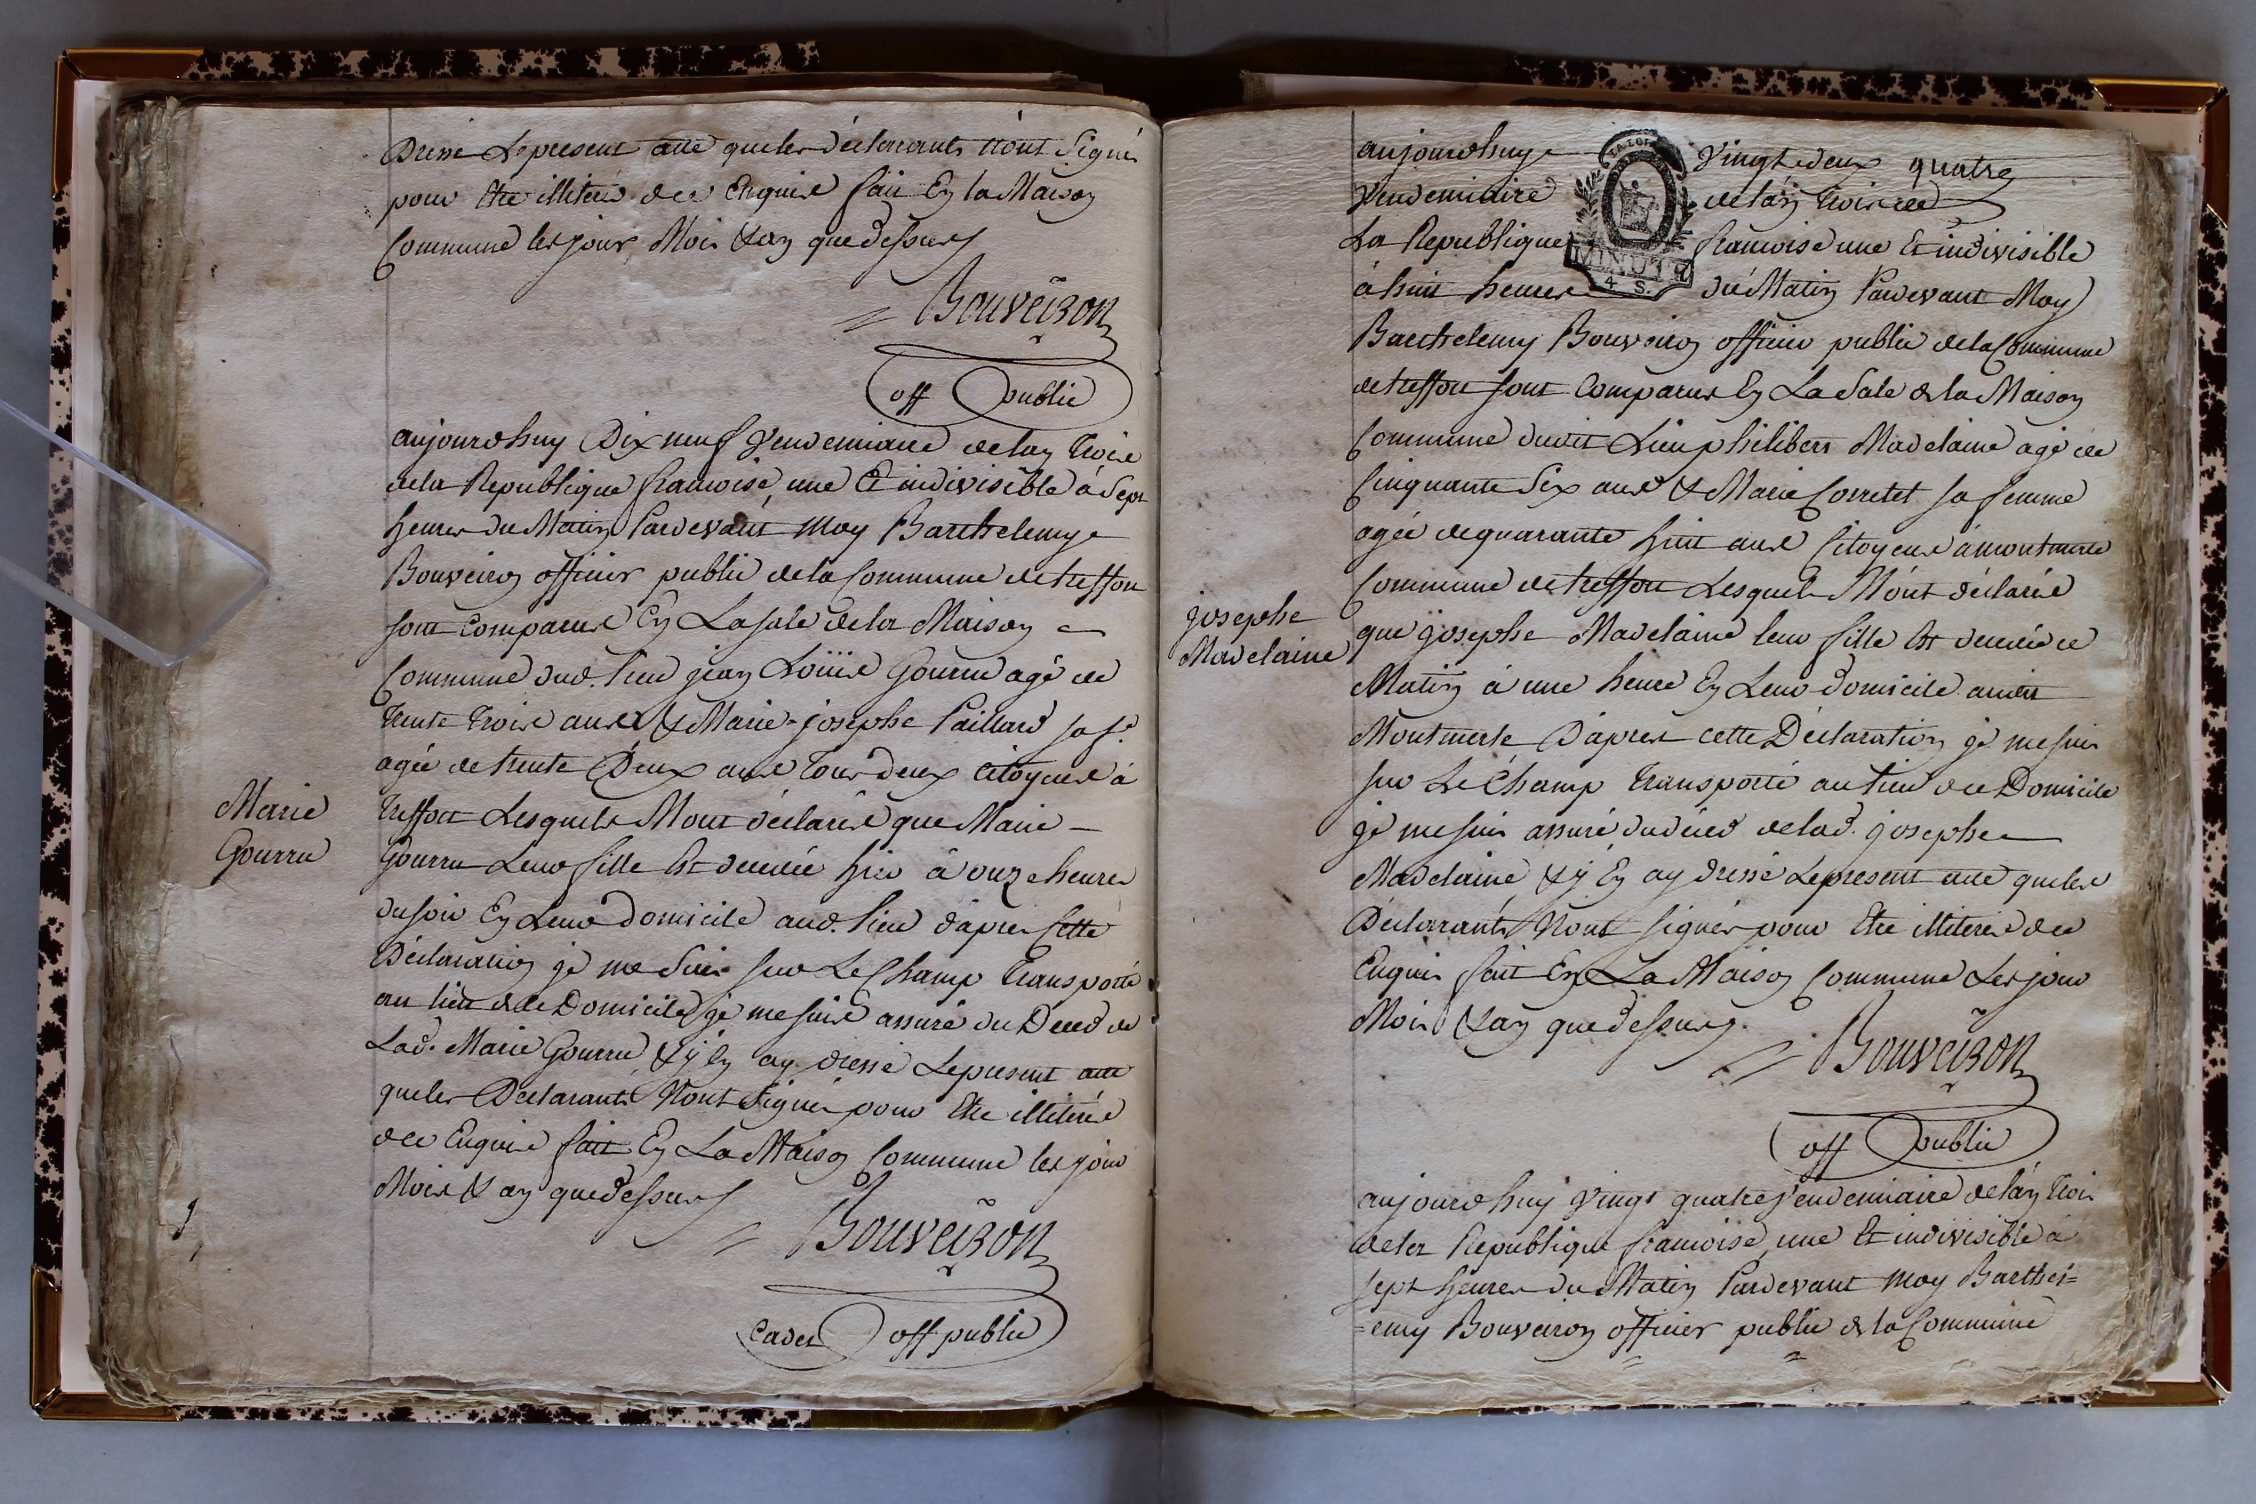 Dressé Le present acte que les déclarants n'ont Signés
pour Etre illiterés de ce Enquis fait En la Maison
Commune les jour, Mois & an que dessus
Bouveiron
off public
aujourdhuy Dix neuf Vendemiaire de lan trois
de la Republique francoise, une Et indivisible à Sept
heures du Matin Pardevant Moy Barthelemy
Bouveiron officier public de la Commune de treffort
sont comparus En La sale de la Maison
Commune dud. lieu jean Loüis Gourru agé de
trente trois ans & Marie-josephe Paillard sa f.
agée de trente Deux ans tous deux citoyens à
treffort Lesquels Mont déclarés que Marie
Marie
Gourru
Gourru Leur fille Est decedée hier à onze heures
du soir En Leur domicile aud. lieu d'apres Cette
Déclaration je me Suis sur Le Champ transporté
au lieu de ce Domicile, je me suis assuré du Deced de
Lad. Marie Gourru, & j'en ay dressé Le present acte
que les Déclarants N'ont Signés pour Etre illiterés
de ce Enquis fait En La Maison Commune les jour
Mois & an que dessus
Bouveiron
cadet off public
aujourdhuy Vingt deux quatre
Vendemiaire de l'an trois de
La Republique francoise une Et indivisible
à huit heures du Matin Pardevant Moy
LA LOI
MINUTE
4 S.
Barthelemy Bouveiron officier public de la Commune
de treffort sont Comparus En La Sale de la Maison
Commune dudit Lieu philibert Madelaine agé de
Cinquante Six ans & Marie Corretet sa femme
agée de quarante huit ans Citoyens à montmerle
Commune de treffort Lesquels M'ont déclarés
josephe
Madelaine
que josephe Madelaine leur fille Est decedée ce
Matin à une heure En Leur domicile audit
Montmerle D'apres cette Déclaration je me suis
sur Le Champ transporté au lieu de ce Domicile
je me suis assuré du déced de lad. josephe
Madelaine & j'En ay dressé Le present acte que les
Déclarants N'ont signés pour Etre illiterés de ce
Enquis fait En La Maison Commune Les jour
Mois & an que dessus.
Bouveiron
off public
aujourdhuy vingt quatre Vendemiaire de l'an trois
de la Republique francoise, une Et indivisible à
sept heures du Matin Pardevant Moy Barthel=
=emy Bouveiron officier public de la Commune